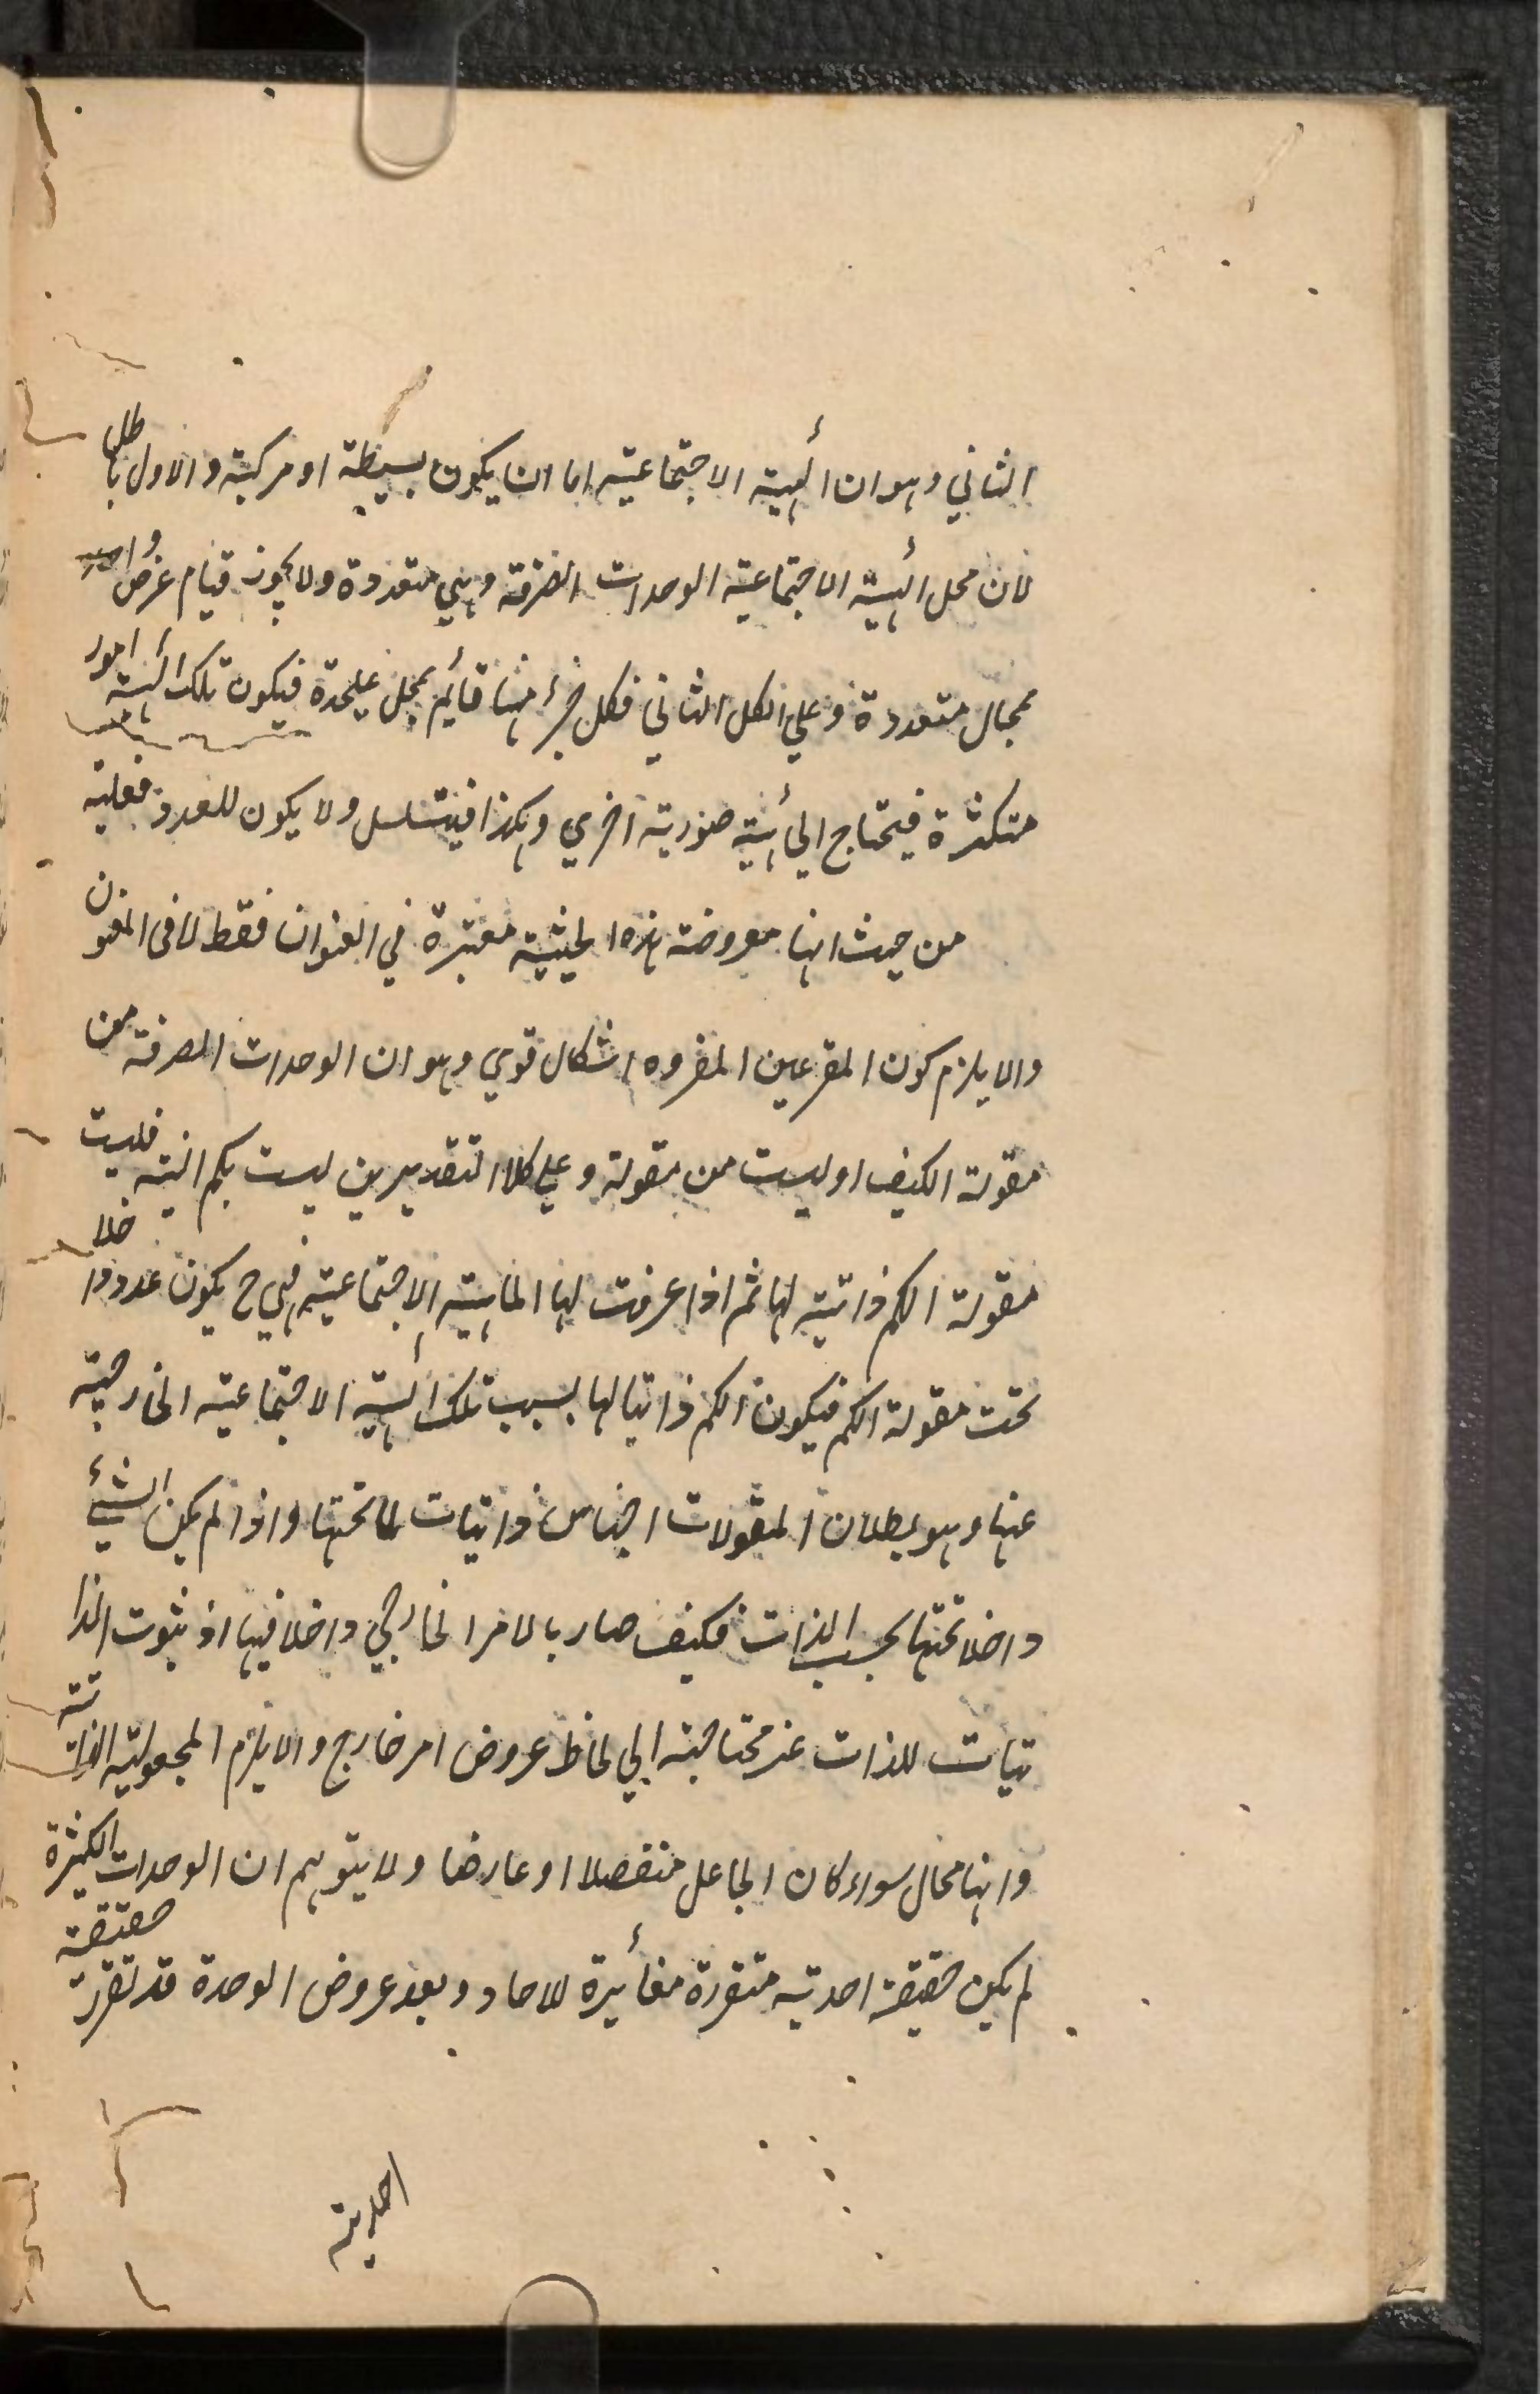 الثاني وهو ان الهيئة الاجتماعية اما ان يكون بسيطة او مركبة والاول باطل
لان محل الهيئة الاجتماعية الوحدات الصرفة وهي متعددة ولا يجوز قيام عرض واحد
بمحال متعددة وعلي الثاني فكل جزء منها قائم بمحل عليحدة فيكون تلك الهيئة امور
متكثرة فيحتاج الي هيئة صورية اخري وهكذا فيتسلسل ولا يكون للعدد فعلية
من حيث انها معروضة هذه الحيثية معتبرة في العنوان فقط لا في المعنون
والا يلزم كون اشكال قوي وهو ان الوحدات الصرفة من
مقولة الكيف او ليست من مقولة وعلي كلا التقديرين ليست بكم البتة فليست
مقولة الكم ذاتية لها ثم اذا عرضت لها الهيئة الاجتماعية فهي ح يكون عددا داخلا
تحت مقولة الكم فيكون الكم ذاتيا لها بسبب تلك الهيئة الاجتماعية الخارجية
عنها وهو بطلان المقولات اجناس ذاتيات لما تحتها واذا لم يكن الشيء
داخلا تحتها بحسب الذات فكيف صار بالامر الخارجي داخلا فيها اذ ثبوت الذا
تيات للذات غير محتاجة الي لحاظ عروض امر خارج والا يلزم المجعولية الذاتية
وانها محال سواء كان الجاعل منفصلا او عارضا ولا يتوهم ان الوحدات الكثيرة
لم يكن حقيقة احدية متقررة مغائيرة للاحاد وبعد عروض الوحدة قد تقررت حقيقة
احدية